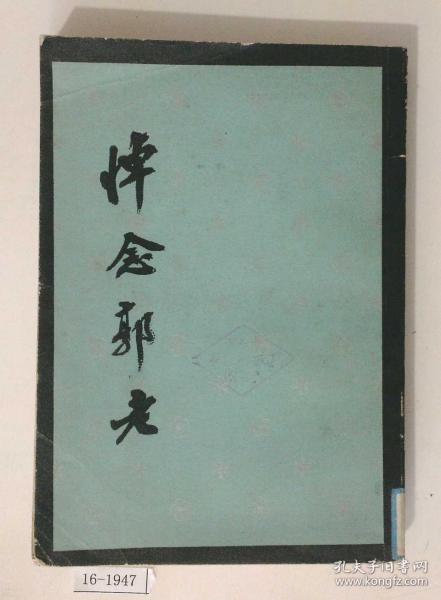 悼念郭老
16-1947
孔夫子旧书网
www.kongfz.com